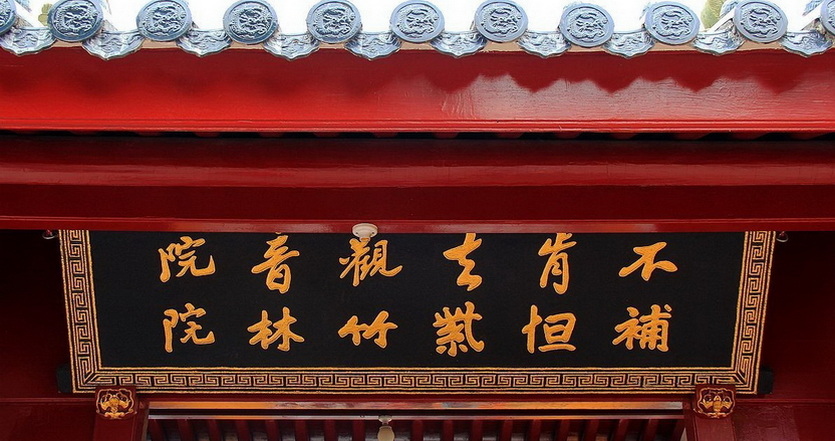 不肯去觀音院
補怛紫竹林院